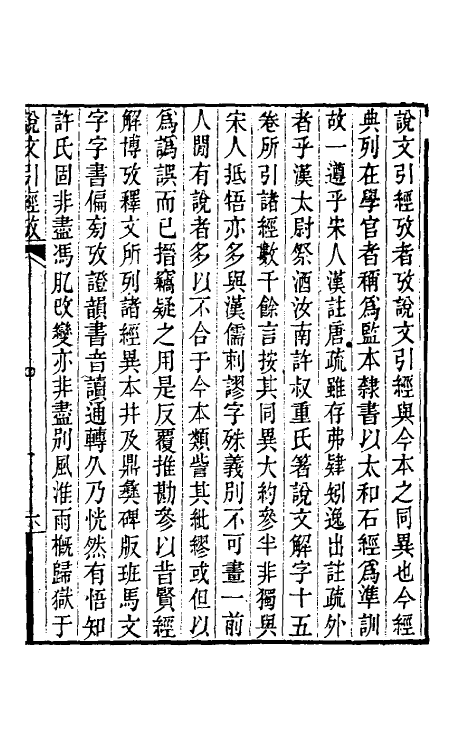 說文引經攷者攷說文引經與今本之同異也今經
典列在學官者稱爲監本隸書以太和石經爲準訓
故一遵乎宋人漢註唐疏雖存弗肄矧逸出註疏外
者乎漢太尉祭酒汝南許叔重氏箸說文解字十五
卷所引諸經數千餘言按其同異大約參半非獨與
宋人抵牾亦多與漢儒刺謬字殊義別不可畫一前
人閒有說者多以不合于今本類訾其紕繆或但以
爲譌誤而已搢竊疑之用是反覆推勘參以昔賢經
解博攷釋文所列諸經異本幷及鼎彝碑版班馬文
字字書偏旁攷證韻書音讀通轉久乃恍然有悟知
許氏固非盡馮肊改變亦非盡別風淮雨概歸獄于
說文引經攷
六